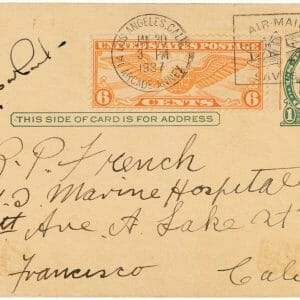 LOS ANGELES, CALIF.
JAN 20
3 PM
1937
ARCADE ANNEX
AIR-MAIL
SAV
UNITED STATES POSTAGE
6 CENTS 6
1
THIS SIDE OF CARD IS FOR ADDRESS
R. P. French
S Marine Hospital
Ave. A. Lake St
Francisco
Cal